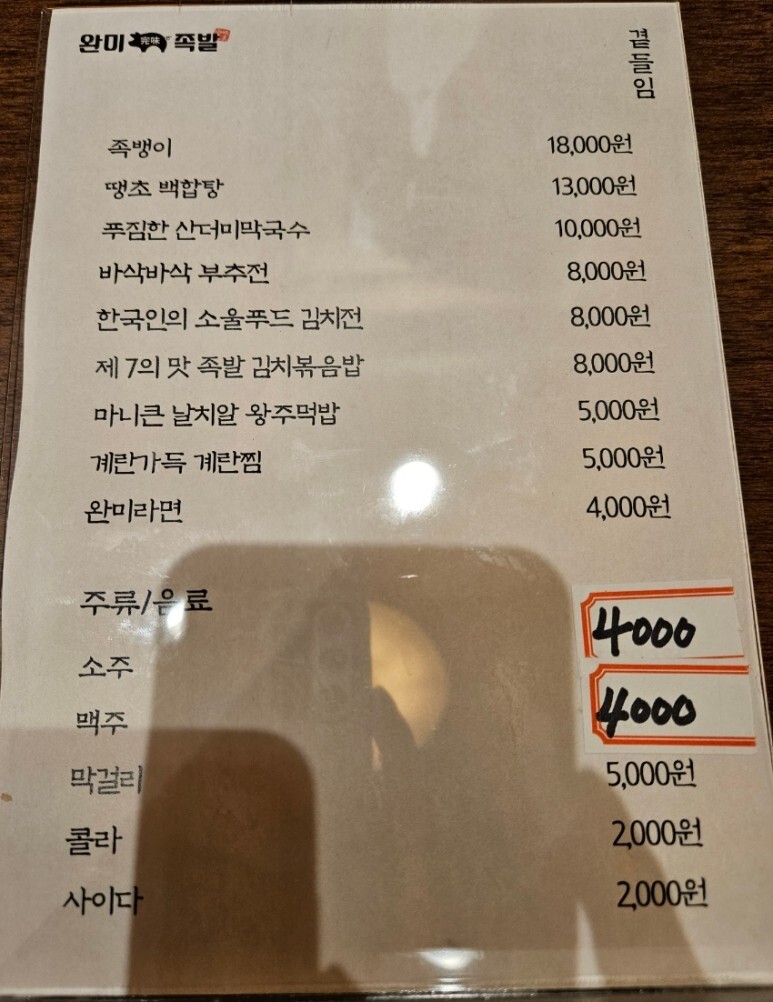 완미 完味 족발
곁들임
족뱅이 18,000원
땡초 백합탕 13,000원
푸짐한 산더미막국수 10,000원
바삭바삭 부추전 8,000원
한국인의 소울푸드 김치전 8,000원
제 7의 맛 족발 김치볶음밥 8,000원
마니큰 날치알 왕주먹밥 5,000원
계란가득 계란찜 5,000원
완미라면 4,000원
주류/음료
소주 4000
맥주 4000
막걸리 5,000원
콜라 2,000원
사이다 2,000원